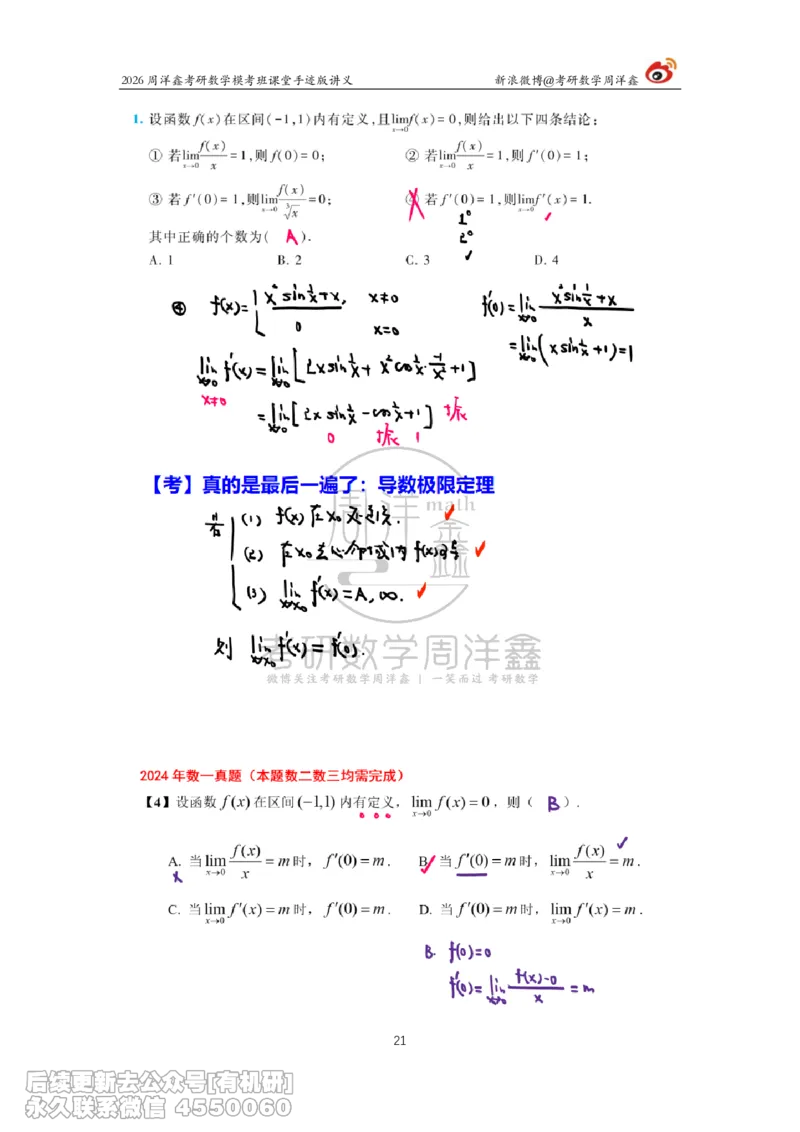 2026 周洋鑫考研数学模考班课堂手迹版讲义 新浪微博@考研数学周洋鑫
1. 设函数 f(x) 在区间(-1,1)内有定义,且lim_{x→0} f(x)=0,则给出以下四条结论:
① 若lim_{x→0} f(x)/x=1,则 f(0)=0; ② 若lim_{x→0} f(x)/x=1,则 f′(0)=1;
③ 若 f′(0)=1,则lim_{x→0} f(x)/∛x=0; ④ 若 f′(0)=1,则lim_{x→0} f′(x)=1.
1°
2°
其中正确的个数为( A ).
A. 1 B. 2 C. 3 ✓ D. 4
④ f(x)={ x² sin 1/x + x, x≠0
0 x=0
f′(0)=lim_{x→0} (x² sin 1/x + x)/x
=lim_{x→0}(x sin 1/x +1)=1
lim_{x→0} f′(x)=lim_{x→0}[2x sin 1/x + x² cos 1/x · -1/x² +1]
x≠0
=lim_{x→0}[2x sin 1/x - cos 1/x +1] 振
0 振 1
【考】真的是最后一遍了:导数极限定理
若 (1) f(x) 在 x₀ 处连续. ✓
(2) 在 x₀ 去心邻域内 f(x)可导 ✓
(3) lim_{x→x₀} f′(x)=A,∞. ✓
则 lim_{x→x₀} f′(x)=f′(0).
周洋鑫
math
考研数学周洋鑫
微博关注考研数学周洋鑫 | 一笑而过 考研数学
2024 年数一真题（本题数二数三均需完成）
【4】设函数 f(x) 在区间(−1,1) 内有定义，lim_{x→0} f(x)=0，则（ B ）.
A. 当 lim_{x→0} f(x)/x=m 时，f′(0)=m. B. 当 f′(0)=m 时，lim_{x→0} f(x)/x=m. ✓
C. 当 lim_{x→0} f′(x)=m 时，f′(0)=m. D. 当 f′(0)=m 时，lim_{x→0} f′(x)=m.
B. f(0)=0
f′(0)=lim_{x→0} (f(x)-0)/x = m
21
后续更新去公众号[有机研]
永久联系微信 4550060